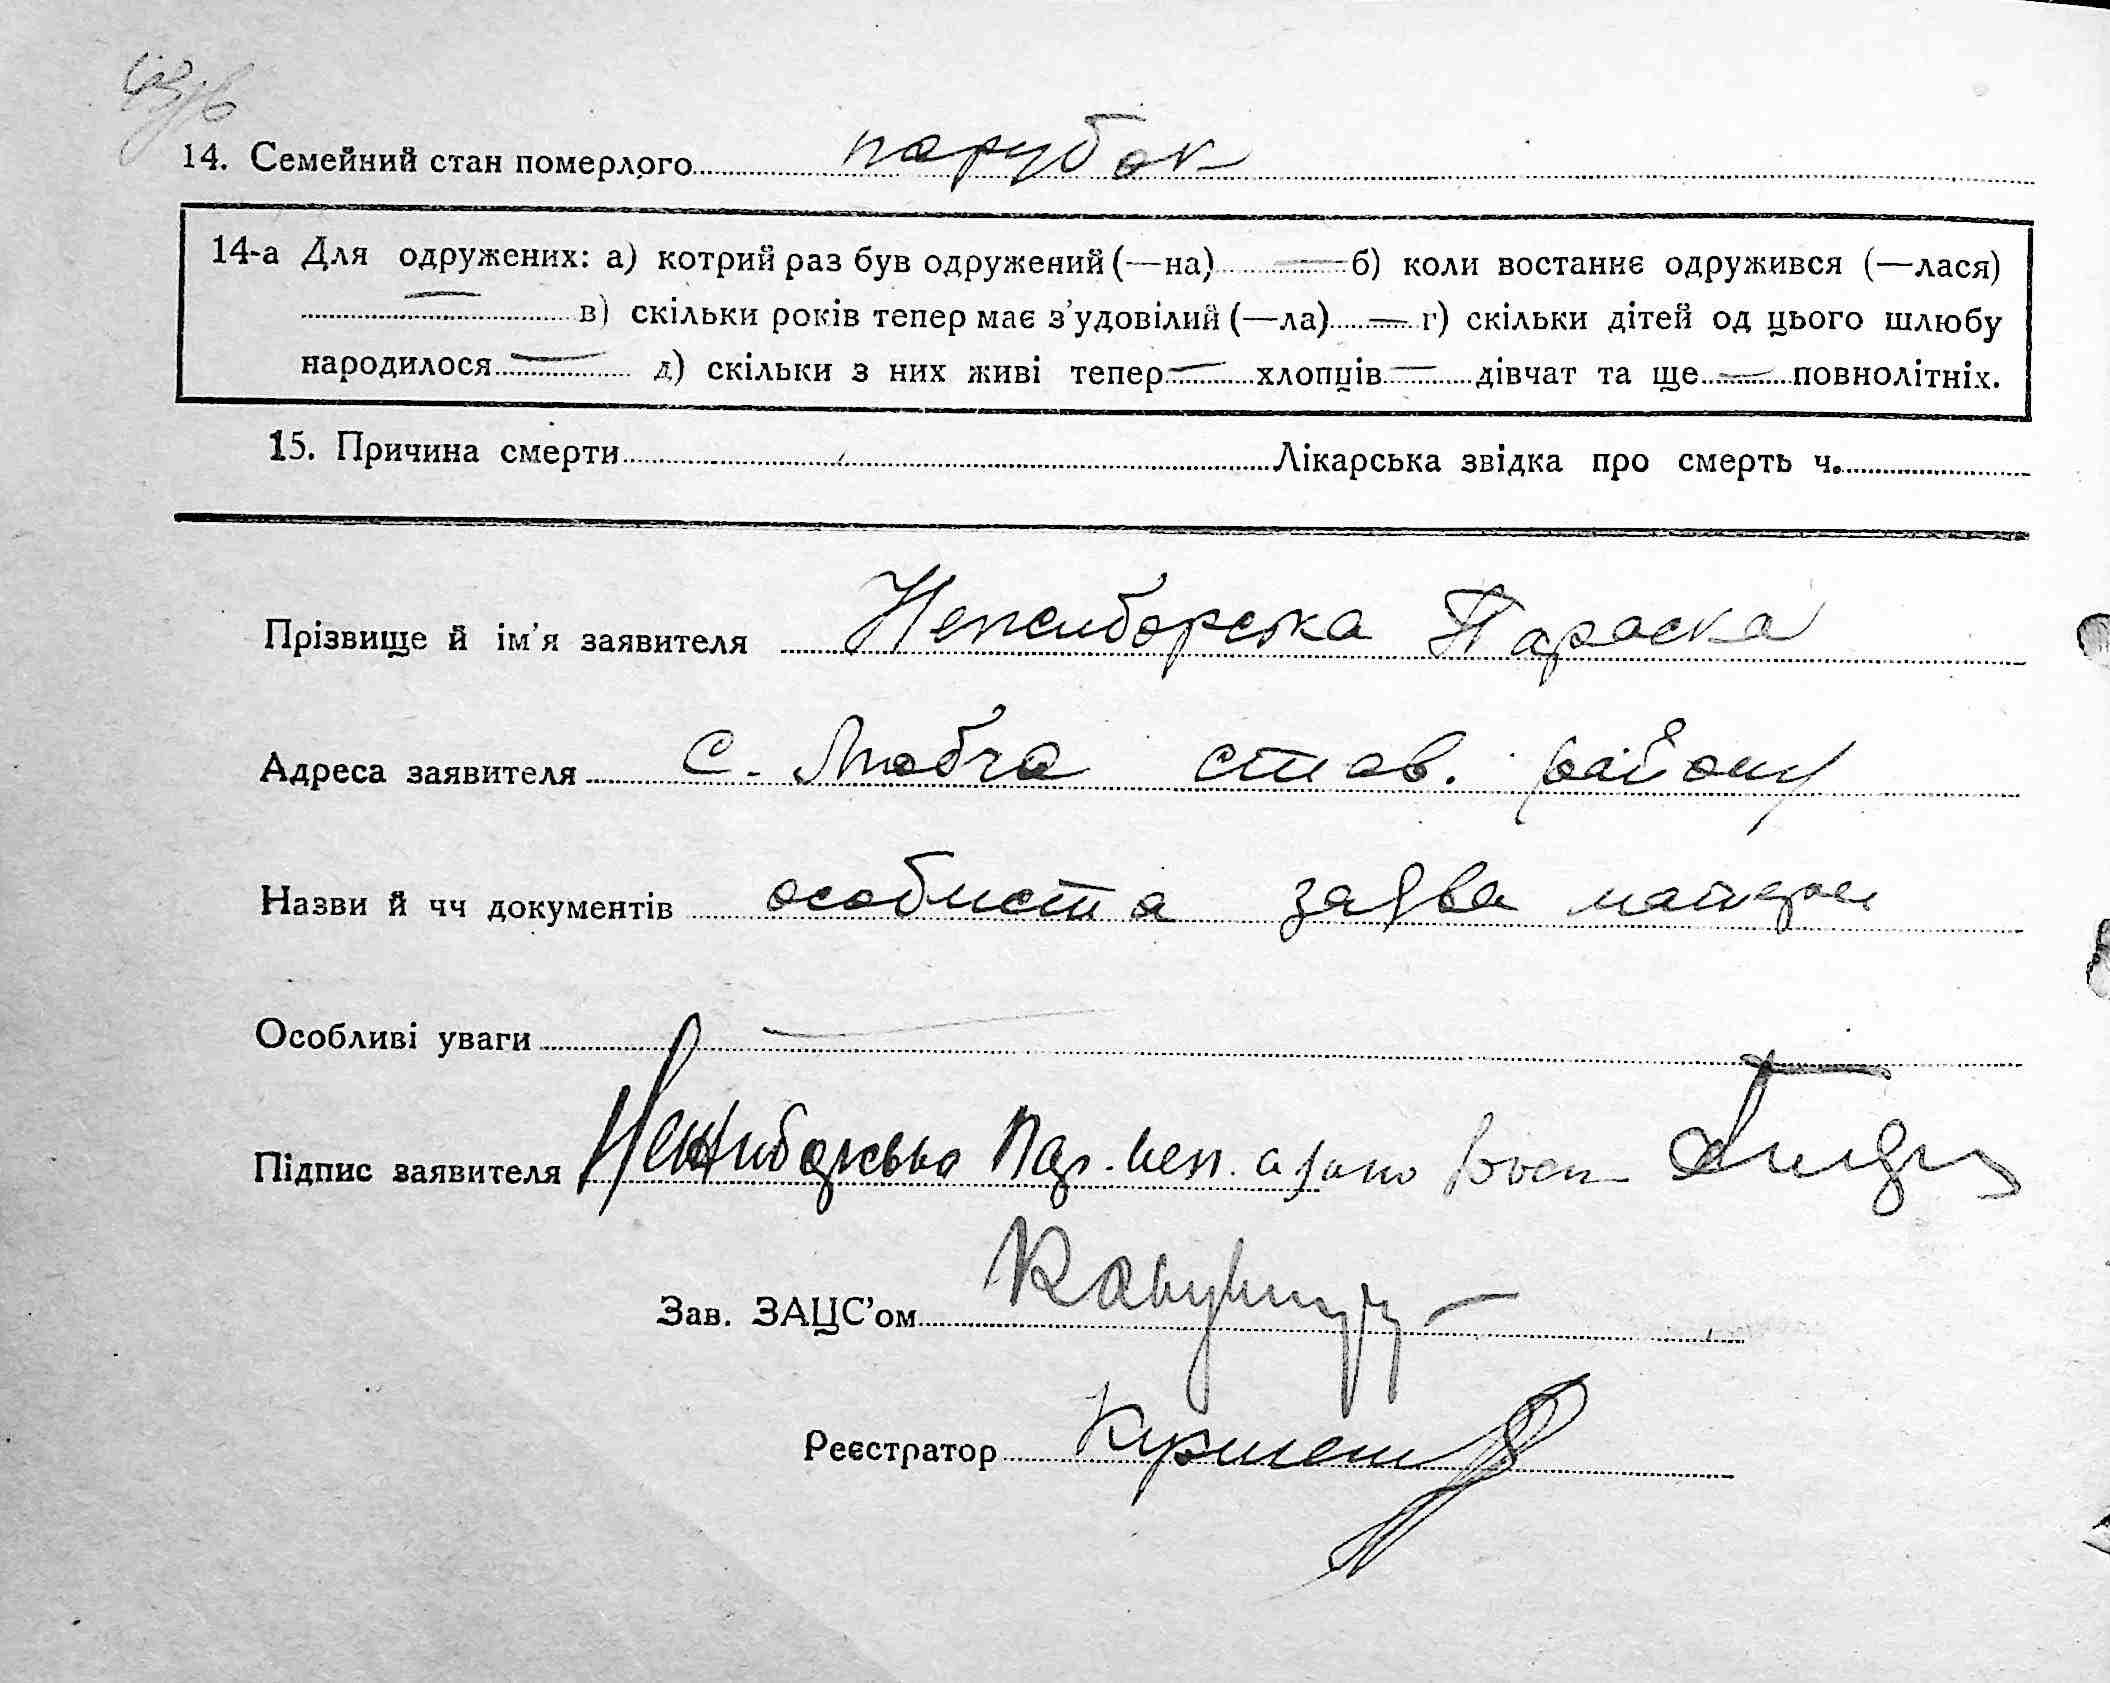 14. Семейний стан померлого парубок
14-а Для одружених: а) котрий раз був одружений (—на) — б) коли востаннє одружився (—лася)
— в) скільки років тепер має з'удовілий (—ла) — г) скільки дітей од цього шлюбу
народилося — д) скільки з них живі тепер — хлопців — дівчат та ще — повнолітніх.
15. Причина смерти Лікарська звідка про смерть ч.
Прізвище й ім'я заявителя Непсиборська Параска
Адреса заявителя С. Любча став. району
Назви й чч документів особиста заява матери
Особливі уваги —
Підпис заявителя
Зав. ЗАЦС'ом
Реєстратор